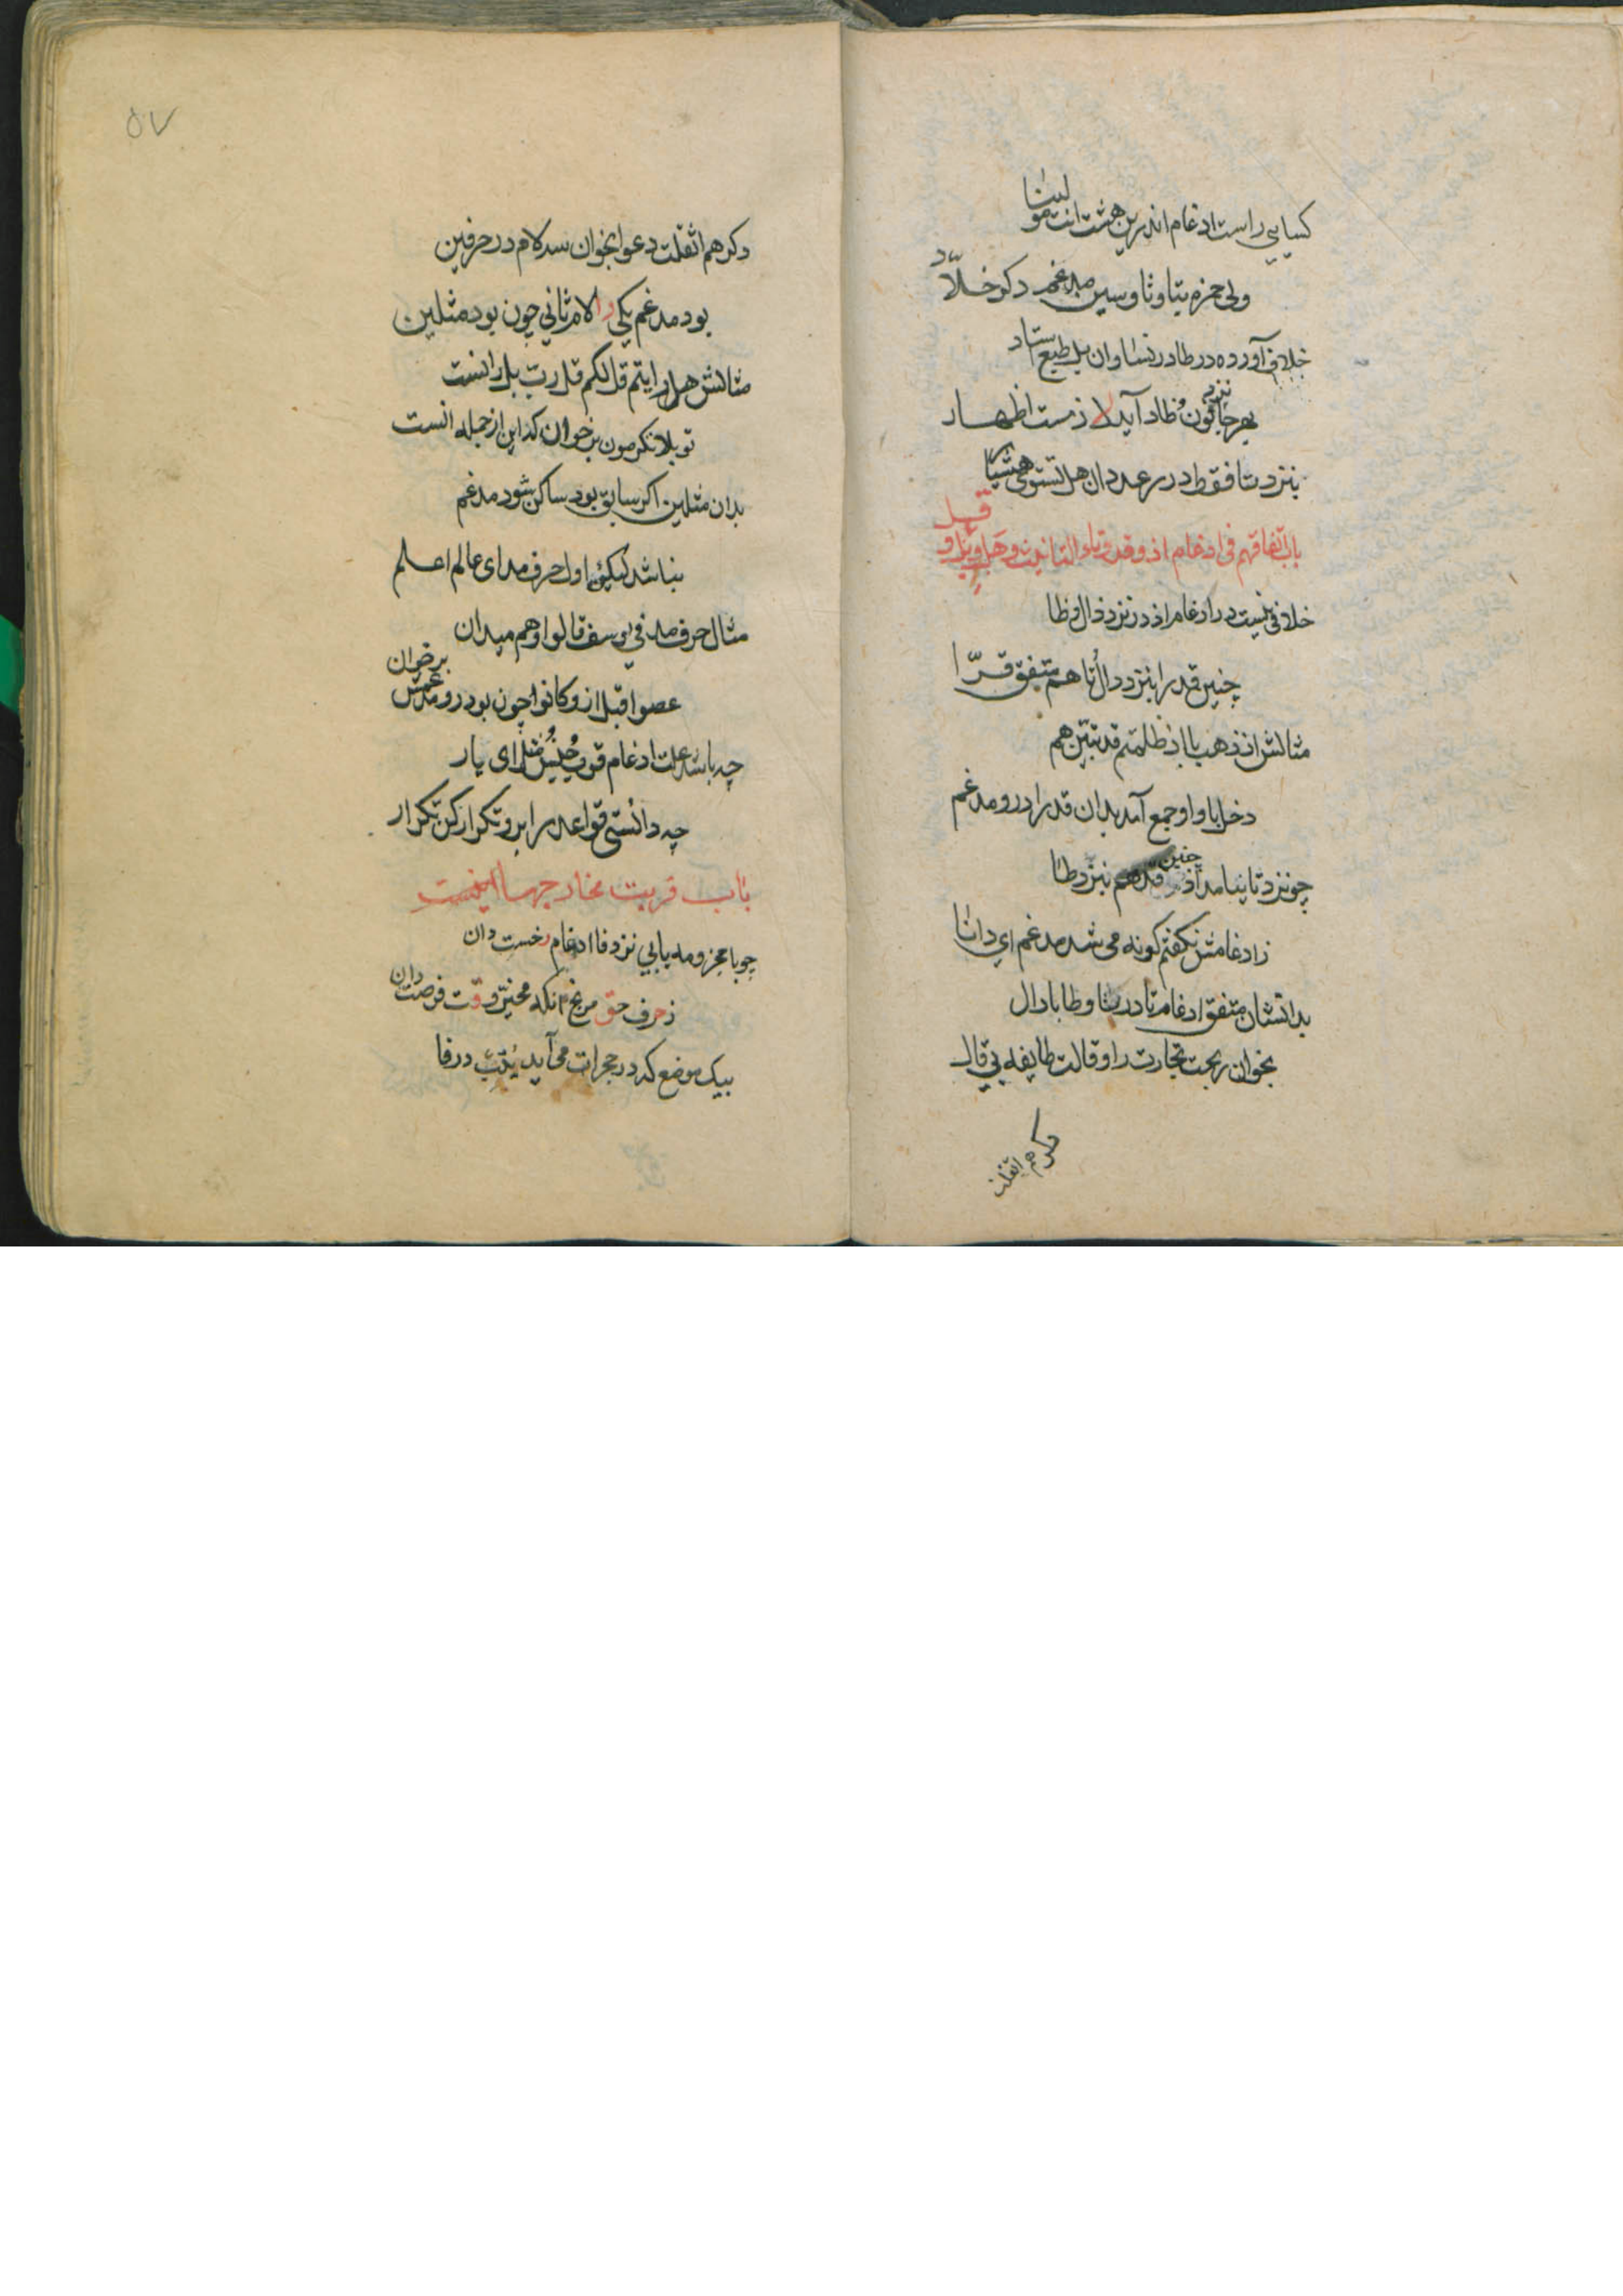 کسایی راست ادغام اندرین هشت انت مولینا
ولی حمزه بتا و ثا و سین مدغم دکر خلّاد
خلاف آورده در طا در نسا وان بل طبع ستاد
بهر جا نزد نون و ظاد آید لازمست اظهار
بنزد تا فقط در رعد دان هل تستوی هشیا
باب اتفاقهم فی ادغام اذ و قد و تاء التانیث و هل و بل و قل
خلافی نیست در ادغام اذ در نزد ذال و ظا
چنین قد را بنزد دال تا هم متفق قرّا
مثالش اذ ذهب با اذ ظلمتم قد تبین هم
دخل با واو جمع آمد بدان قد را درو مدغم
چو نزد تا نیامد اذ چنین قد هم بنزد طا
ز ادغامش نکفتم کونه می شد مدغم ای دانا
بدانستان متفق ادغام تا در تا و طا با دال
بخوان ربحت تجارت را و قالت طایفه بی قال
دکر هم اثقلت
۵۷
دکر هم اثقلت دعوا بخوان سد لام در حرفین
بود مدغم یکی را لام ثانی چون بود مثلین
مثالش هل رایتم قل لکم قل رب بل رانست
تو بل لا تکرمون برخوان که این از جمله انست
بدان مثلین اکر سابق بود ساکن شود مدغم
نباشد لیک اول حرف مد ای عالم اعلم
مثال حرف مد فی یوسف قالوا وهم میدان
عصوا قبل از و کانوا چون بود درو مدغمش برخوان
چه باشد علت ادغام قرب و جنس و مثل ای یار
چه دانستی قواعد را برو تکرار کن تکرار
باب قربت مخارجها اینست
چو با مجزومه یابی نزد فا ادغام رخست دان
ز حرف حق مرنج انکه مخیر و وقت فرصت دان
بیک موضع که در حجرات می آید یتب در فا